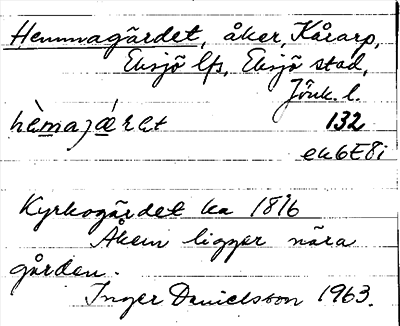 Hemmagärdet, åker, Kårarp,
Eksjö lfs, Eksjö stad,
Jönk. l.
hèmajǽrɛt 132
ek6E8i
Kyrkogärdet ka 1816
Åkern ligger nära
gården.
Inger Danielsson 1963.